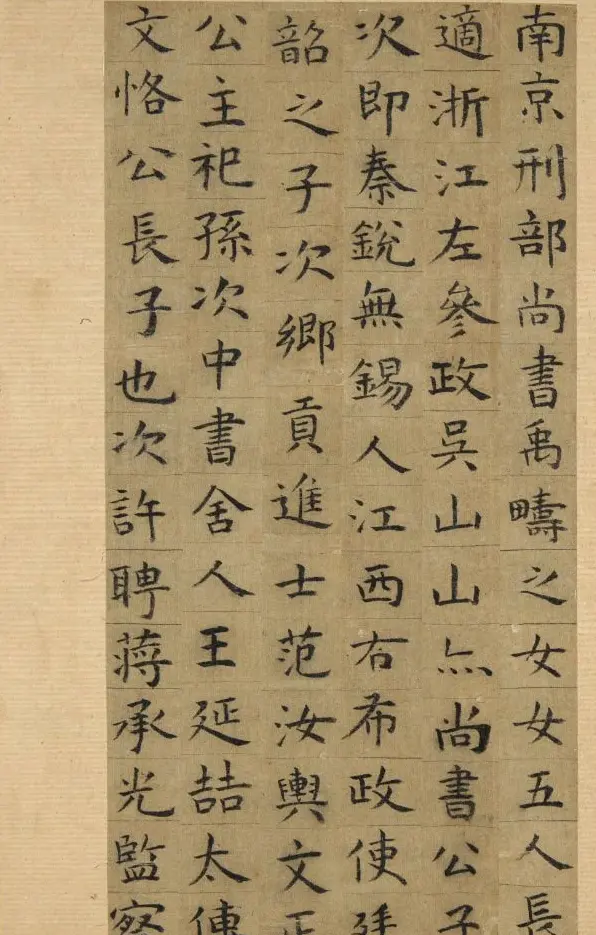 南京刑部尚書禹疇之女女五人長
適浙江左參政吳山山亦尚書公子
次即秦銳無錫人江西右布政使廷
韶之子次鄉貢進士范汝輿文正
公主祀孫次中書舍人王延喆太傅
文恪公長子也次許聘蔣承光監察